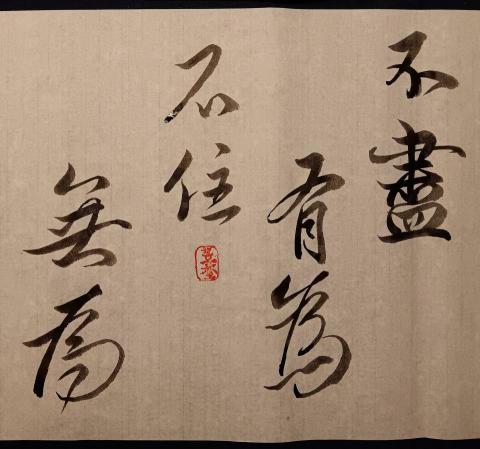 不盡
有為
不住
無為